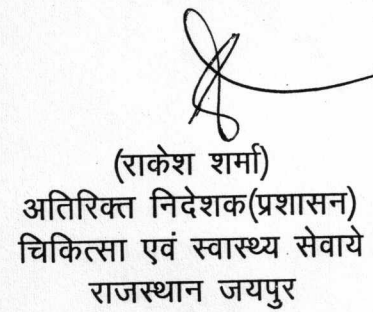 (राकेश शर्मा)
अतिरिक्त निदेशक(प्रशासन)
चिकित्सा एवं स्वास्थ्य सेवाये
राजस्थान जयपुर